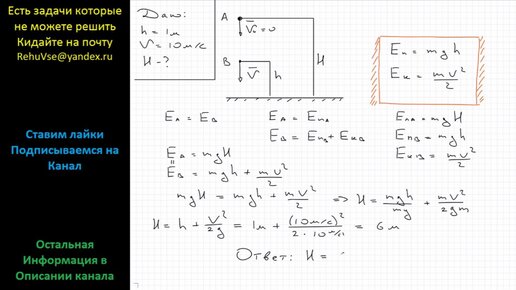 Есть задачи которые
не можете решить
Кидайте на почту
RehuVse@yandex.ru
Ставим лайки
Подписываемся на
Канал
Остальная
Информация в
Описании канала
Дано:
h = 1м
V = 10 м/с
H - ?
A V₀ = 0
B V h H
Eп = mgh
Eк = mV²/2
EA = EB EA = EпA EпA = mgH
EB = EпB + EкB EпB = mgh
EA = mgH EкB = mV²/2
EB = mgh + mV²/2
mgH = mgh + mV²/2 ⇒ H = mgh/mg + mV²/2gm
H = h + V²/2g = 1м + (10 м/с)²/2·10 м/с² = 6 м
Ответ: H =